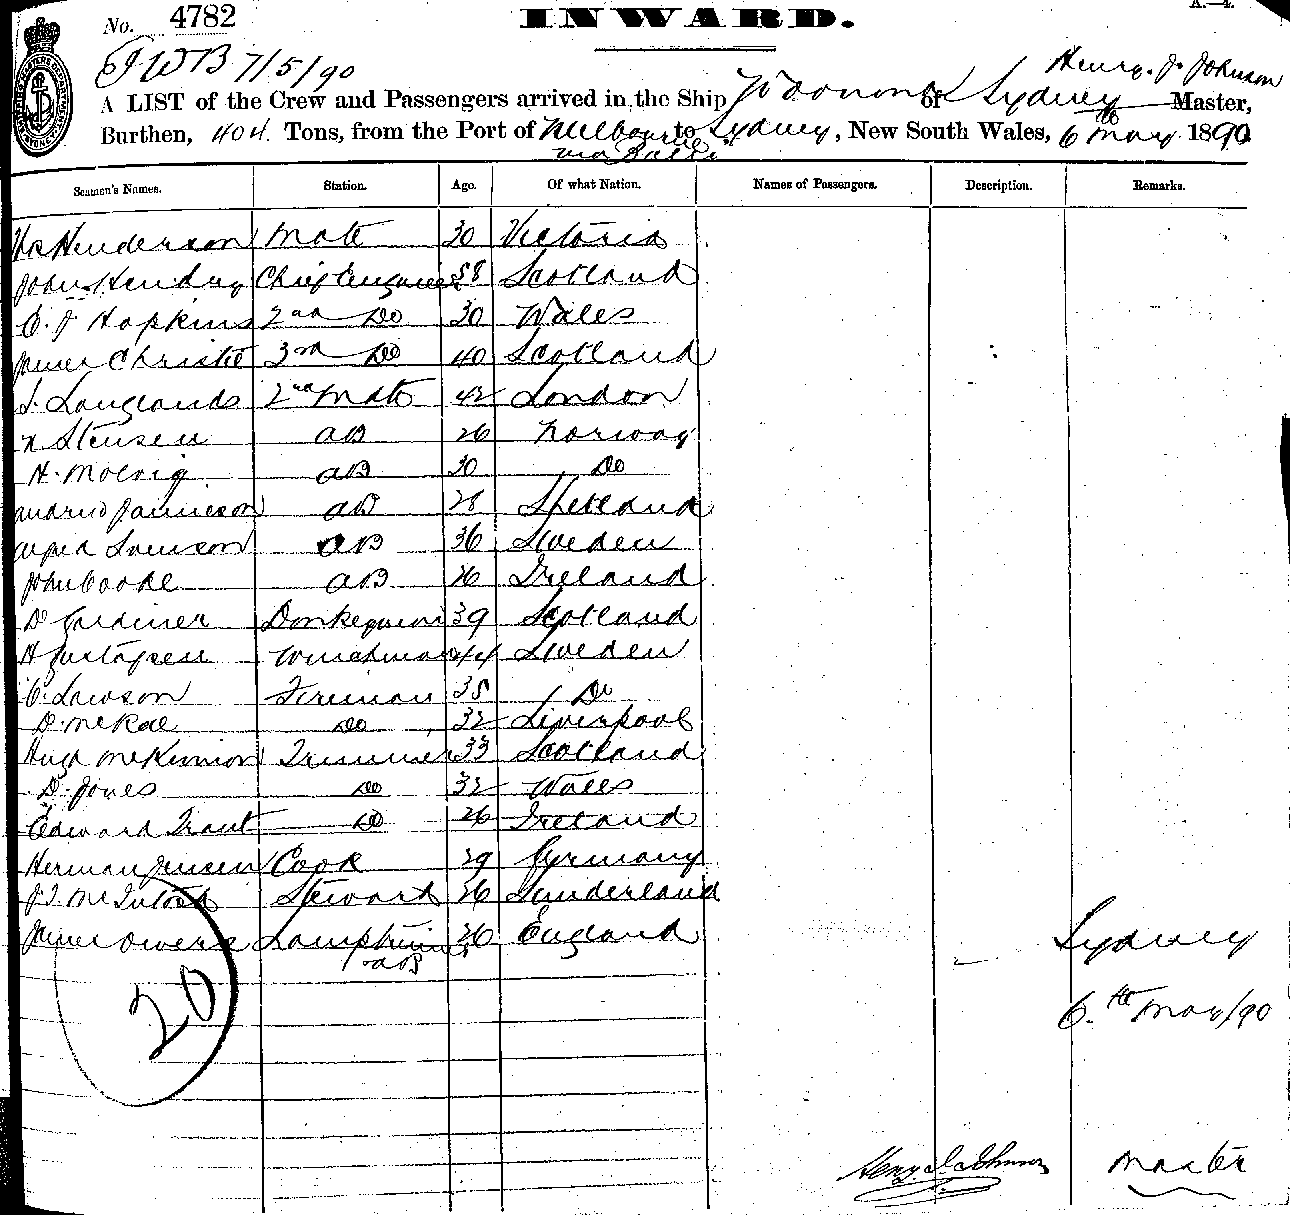 No. 4782
INWARD.
A.—4.
JWB 7/5/90
Henry. J. Johnson
A LIST of the Crew and Passengers arrived in the Ship of Sydney Master,
Burthen, 404. Tons, from the Port of Melbourne to Sydney, New South Wales, 6th May 1890
via Bulli
Seamen's Names. Station. Age. Of what Nation. Names of Passengers. Description. Remarks.
Henderson Mate 30 Victoria
John Hendry Chief Engineer 58 Scotland
E. J Hopkins 2nd Do 30 Wales
James Christie 3rd Do 40 Scotland
J. Langlands 2nd Mate 42 London
N Stensen AB 26 Norway
H. AB 30 Do
Jamieson AB 28 Shetland
AB 36 Sweden
John AB 26 Ireland
D Gardiner Donkeyman 39 Scotland
H Winchman 44 Sweden
C. Lawson Fireman 35 Do
D. McRae Do 32 Liverpool
Hugh McKinnon Trimmer 33 Scotland
D. Jones Do 32 Wales
Edward Trant Do 26 Ireland
Herman Jensen Cook 29 Germany
J. T. McIntosh Steward 26 Sunderland
James Owens Lamptrimmer 26 England
AB
Sydney
20
6.th May/90
Henry. J. Johnson Master